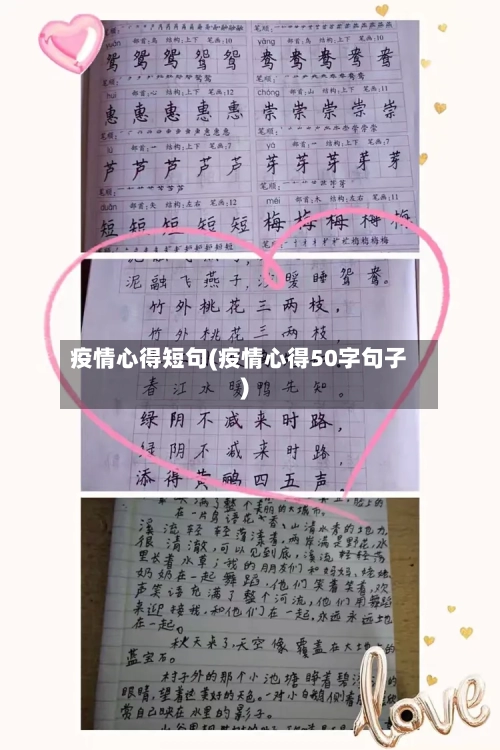 yuān 部首:鸟 结构:上下 笔画:10
yāng 部首:鸟 结构:上下 笔画:10
鸳 鸳 鸳 鸳 鸳
鸯 鸯 鸯 鸯 鸯
笔顺:
笔顺:
huì 部首:心 结构:上下 笔画:12
chóng 部首:山 结构:上下 笔画:11
惠 惠 惠 惠 惠
崇 崇 崇 崇 崇
笔顺:
笔顺:
lú 部首:艹 结构:上下 笔画:7
yá 部首:艹 结构:上下 笔画:7
芦 芦 芦 芦 芦
芽 芽 芽 芽 芽
笔顺:
笔顺:
duǎn 部首:矢 结构:左右 笔画:12
méi 部首:木 结构:左右 笔画:11
短 短 短 短 短
梅 梅 梅 梅 梅
笔顺:
笔顺:
泥融飞燕子,沙暖睡鸳鸯。
竹外桃花三两枝,
竹外桃花三两枝,
疫情心得短句(疫情心得50字句子
)
春江水暖鸭先知。
绿阴不减来时路,
绿阴不减来时路,
添得黄鹂四五声
满了整个美丽的大城市。
在一片鸟语花香、山清水秀的地方
溪流轻轻荡漾着,两岸满是野花,水
很清澈,可以见到底,溪流轻轻荡
里长着水草;我的朋友们和妈妈、姥姥
奶奶在一起舞蹈,他们笑着笑着,欢
声笑语充满了整个河流,他们用舞蹈
来迎接我,和他们在一起,永远永远地
在一起。
秋天来了,天空像覆盖在大地的
蓝宝石。
村子外的那个小池塘睁着碧
眼睛,望着这美好的天色。一对小白鹅侧着
赏自己映在水里的影子。
love